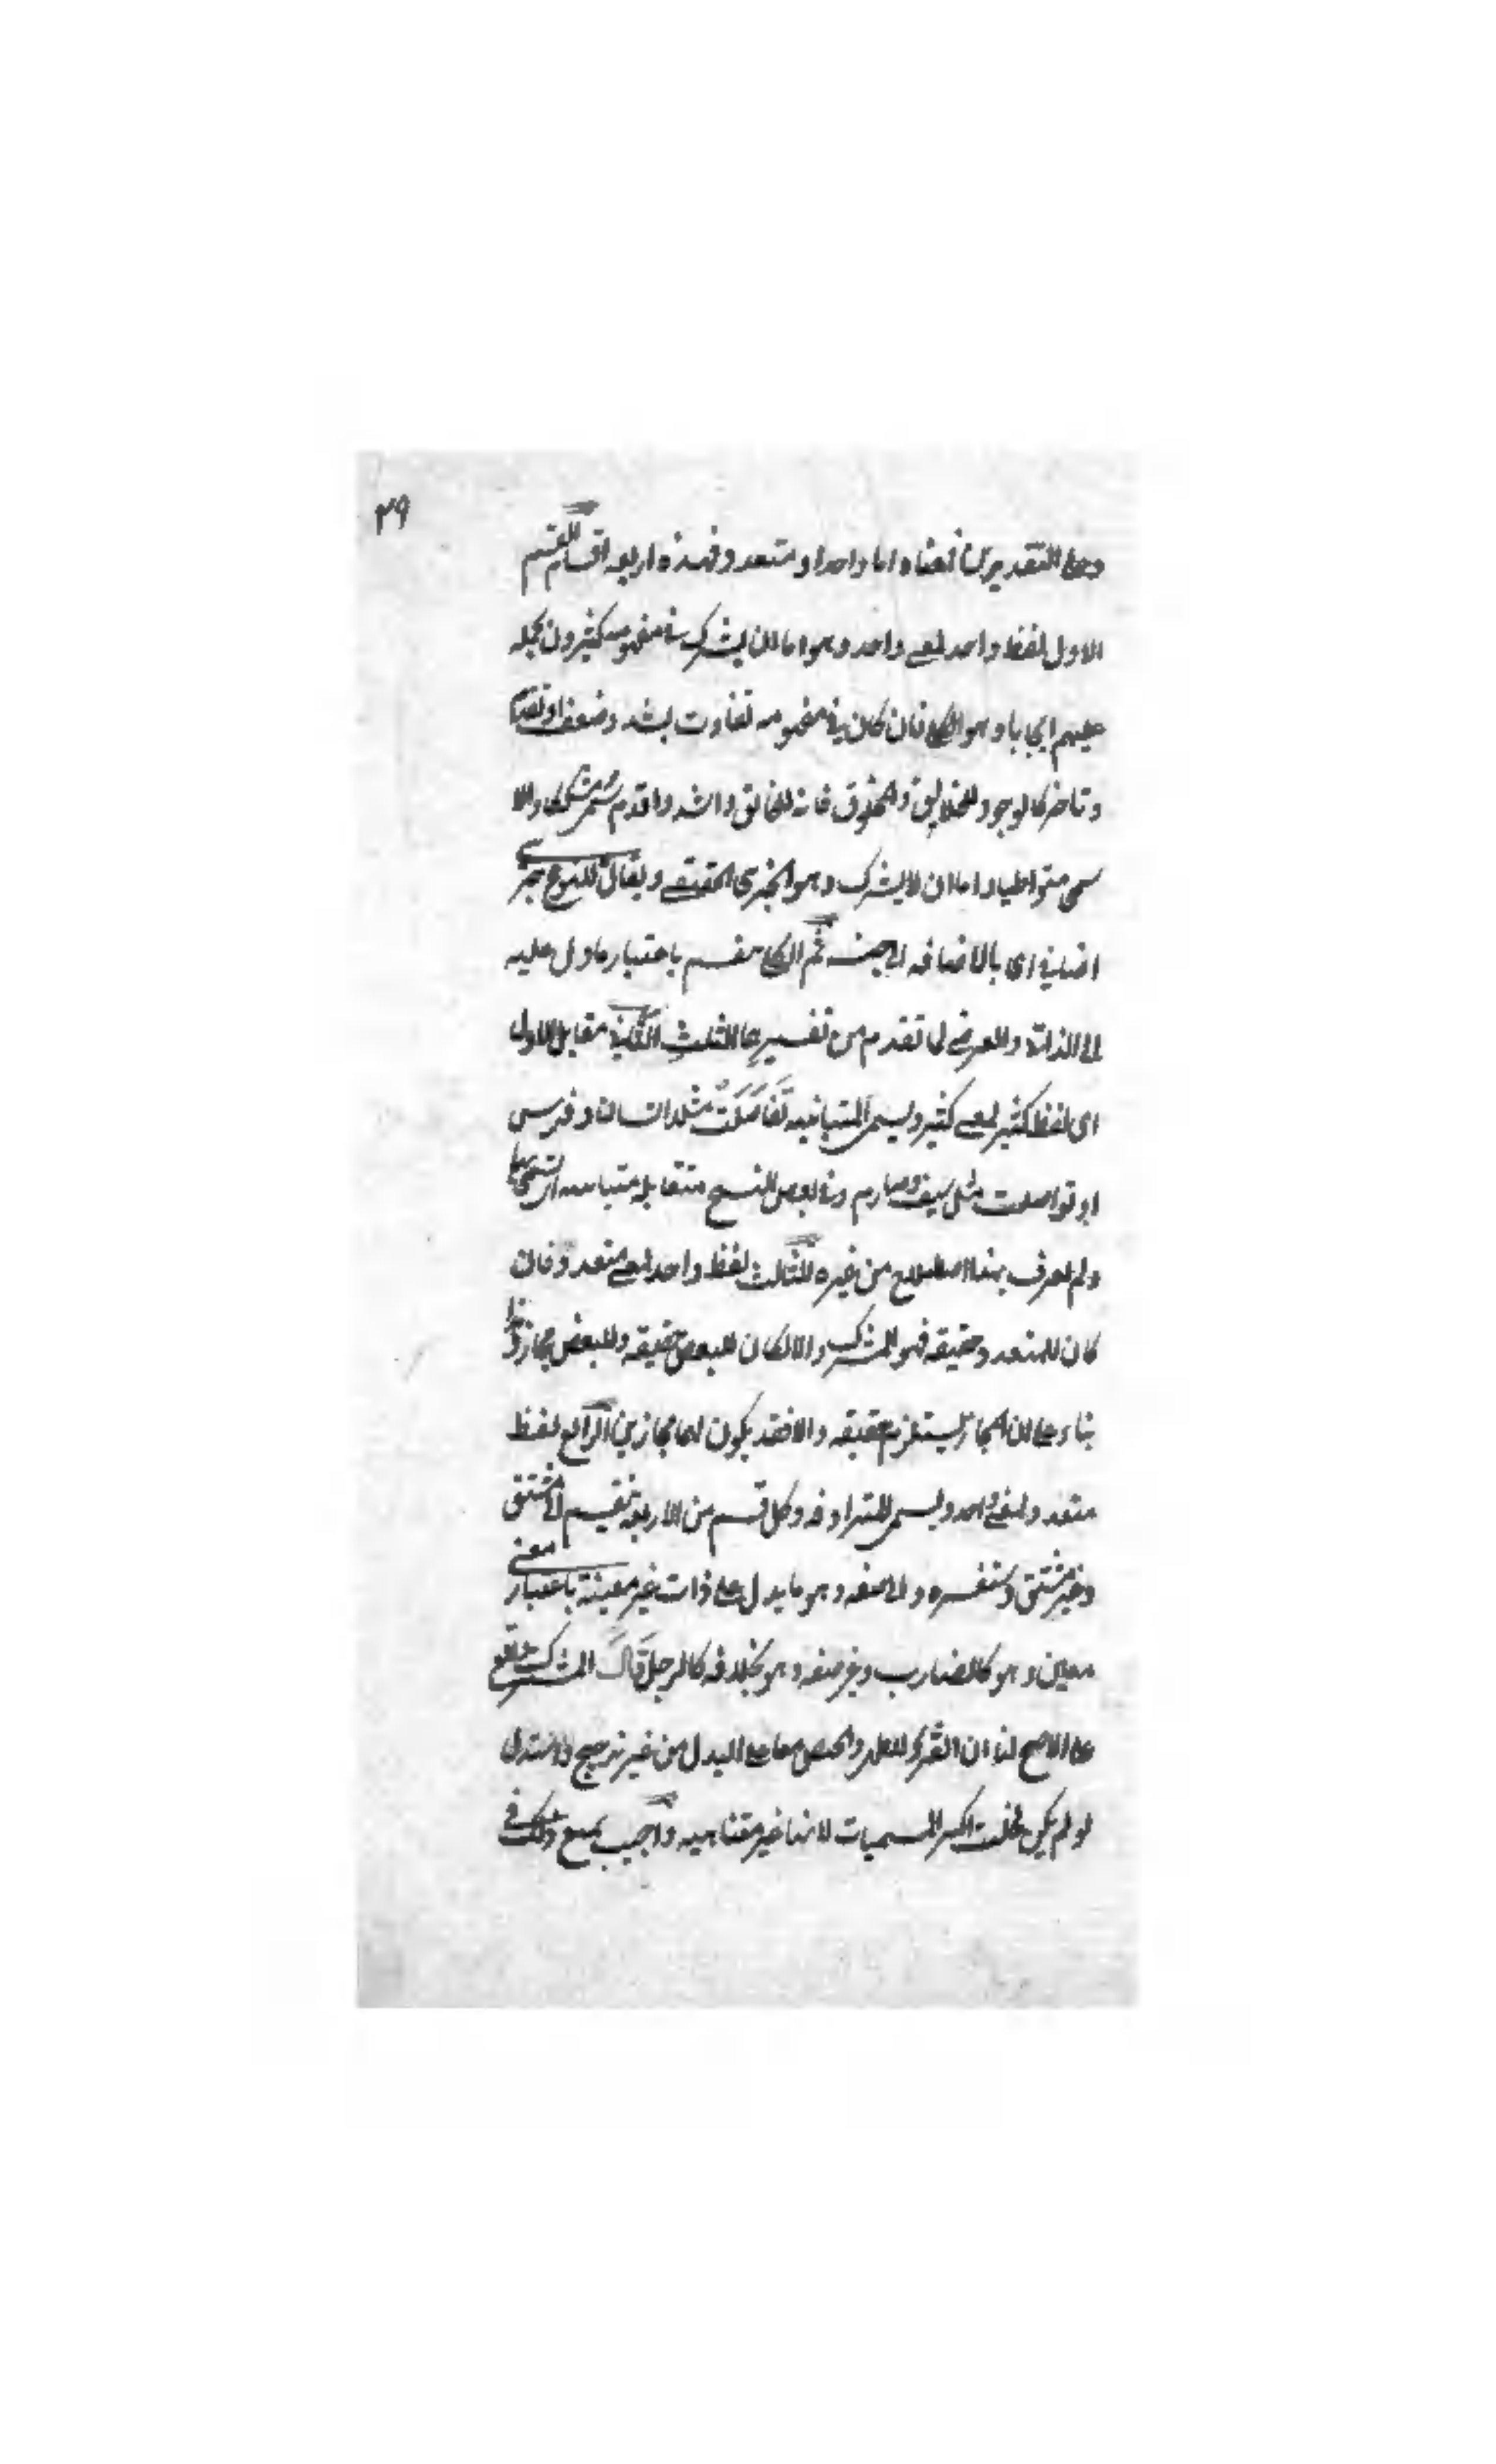 ٢٩
وعلى التقديرين فمعناه اما واحد او متعدد فهذه اربعة اقسام القسم
الاول لفظ واحد لمعنى واحد وهو اما ان يشترك في مفهومه كثيرون بحمله
عليهم ايجابا وهو الكلي فان كان في مفهومه تفاوت بشده وضعف او تقدم
وتاخر كالوجود للخالق والمخلوق فانه للخالق اشد واقدم سمى مشككا والا
سمى متواطيا واما ان لا يشترك وهو الجزئي الحقيقي ويقال للنوع جزئي
اضافي اى بالاضافه الى جنسه ثم الكلي ينقسم باعتبار ما دل عليه
الى الذاتي والعرضي لما تقدم من تفسير الثلث الثاني مقابل الاول
اى لفظ كثير لمعنى كثير ويسمى المتباينه تفاصلت مثل انسان وفرس
او تواصلت مثل سيف وصارم وفي بعض النسخ متقابله متباينه اى تسمى بها
ولم يعرف هذا اصطلاح من غيره الثالث لفظ واحد لمعنى متعدد فان
كان للمتعدد حقيقه فهو المشترك والا كان للبعض حقيقه وللبعض مجازا
بناء على ان المجاز يستلزم الحقيقه والا فقد يكون لهما مجازين الرابع لفظ
متعدد ولمعنى واحد ويسمى المترادفه وكل قسم من الاربعة ينقسم الى مشتق
وغير مشتق وستفسره والى صفه وهو ما يدل على ذات غير معينة باعتبار معنى
معين وهو كالضارب وغير صفه وهو بخلافه كالرجل قال المشترك واقع
على الاصح لنا ان القرء للطهر والحيض معا على البدل من غير ترجيح واستدل
لو لم يكن لخلت اكثر المسميات لانها غير متناهيه واجيب بمنع ذلك في